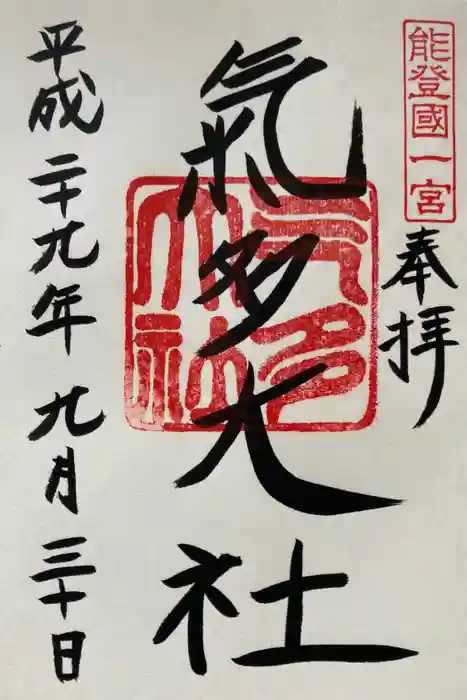 能登國一宮
奉拝
氣多大社
气多大社
平成二十九年九月三十日